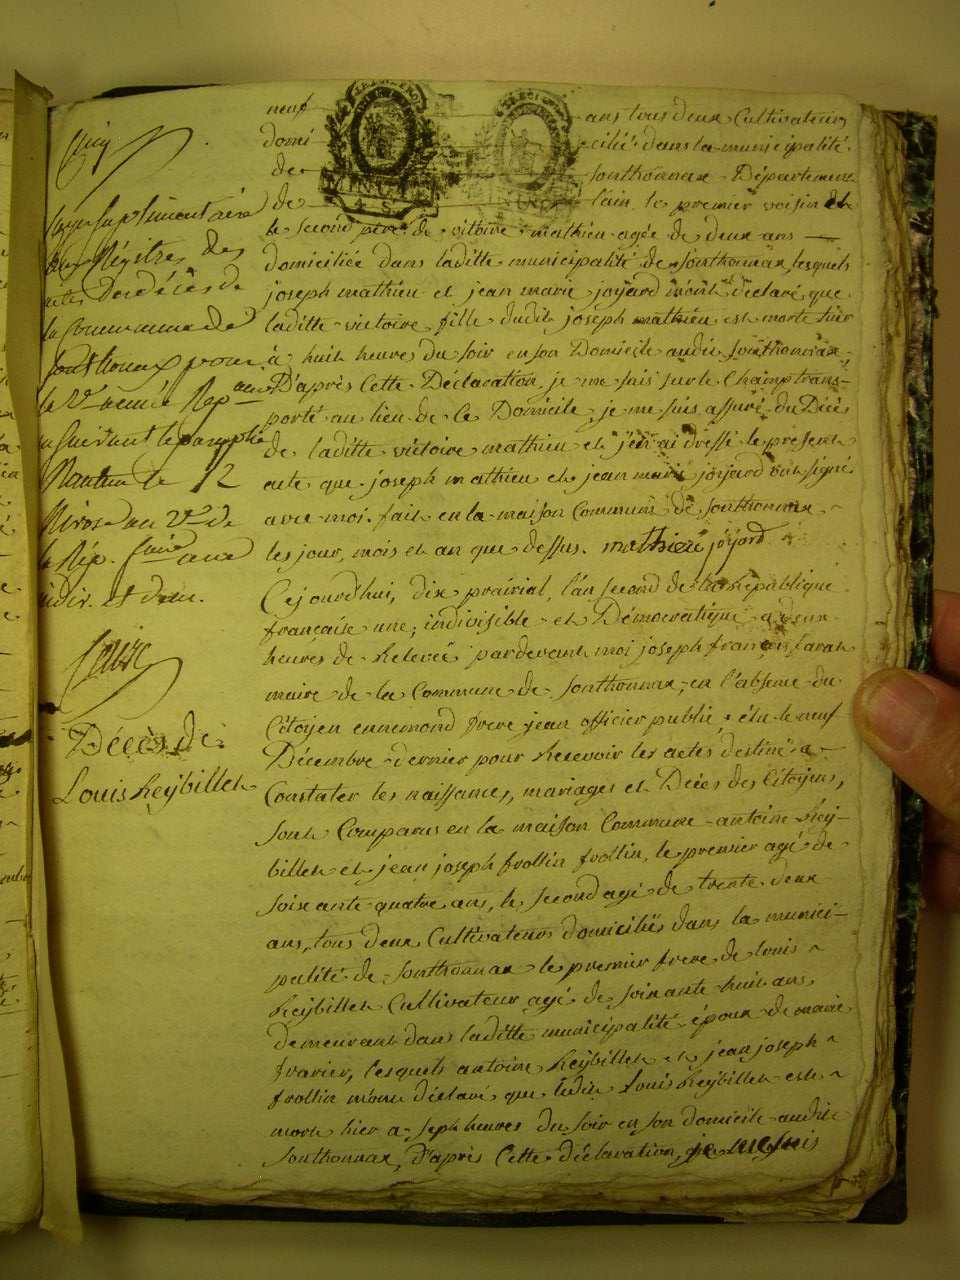 Cinq
supplémentaire
Régitres des
actes de décès de
la Commune de
Sonthonax pour
Nantua le 12
Nivose an 2e de
la Rép. 
indiv. et dém.
Décès de
Louis Reÿbillet
neuf ans tous deux Cultivateurs
domi ciliés dans la municipalité
de Sonthonnax Département
de l'ain, le premier voisin et
le second père de vitoire mathieu agée de deux ans —
domiciliée dans laditte municipalité de Sonthonnax, lesquels
joseph mathieu et jean marie joyard m'ont déclaré que
laditte victoire fille dudit joseph mathieu est morte hier
à huit heure du soir en son Domicile audit Sonthonnax,
D'après Cette Déclaration, je me suis sur le Champ trans-
porté au lieu de ce Domicile je me suis assuré du Décè
de laditte victoire mathieu et j'en ai dressé le présent
acte que joseph mathieu et jean marie joyard ont signé
avec moi. fait en la maison Commune de Sonthonnax
les jour, mois et an que dessus. mathieu joyard
Cejourd'hui, dix prairial, l'an second de la République
française une, indivisible et Démocratique a deux
heures de Relevée pardevant moi joseph françois
maire de la Commune de Sonthonnax, en l'absence du
Citoyen ennemond frere jean officier public élu le neuf
Décembre dernier pour Recevoir les actes destiné a
Constater les naissances, mariages et Décès des Citoyens,
sont Comparus en la maison Commune antoine Reÿ-
billet et jean joseph frollin frollin, le premier agé de
soixante quatre ans, le second agé de trente deux
ans, tous deux Cultivateurs domiciliés dans la munici-
palité de Sonthonnax le premier frere de louis
Reÿbillet Cultivateur agé de soixante huit ans,
demeurant dans laditte municipalité époux de marie
fravier, lesquels antoine Reÿbillet et jean joseph
frollin m'ont déclaré que ledit Louis Reÿbillet est
mort hier a sept heures du soir en son domicile audit
Sonthonnax, D'après Cette déclaration, je me suis